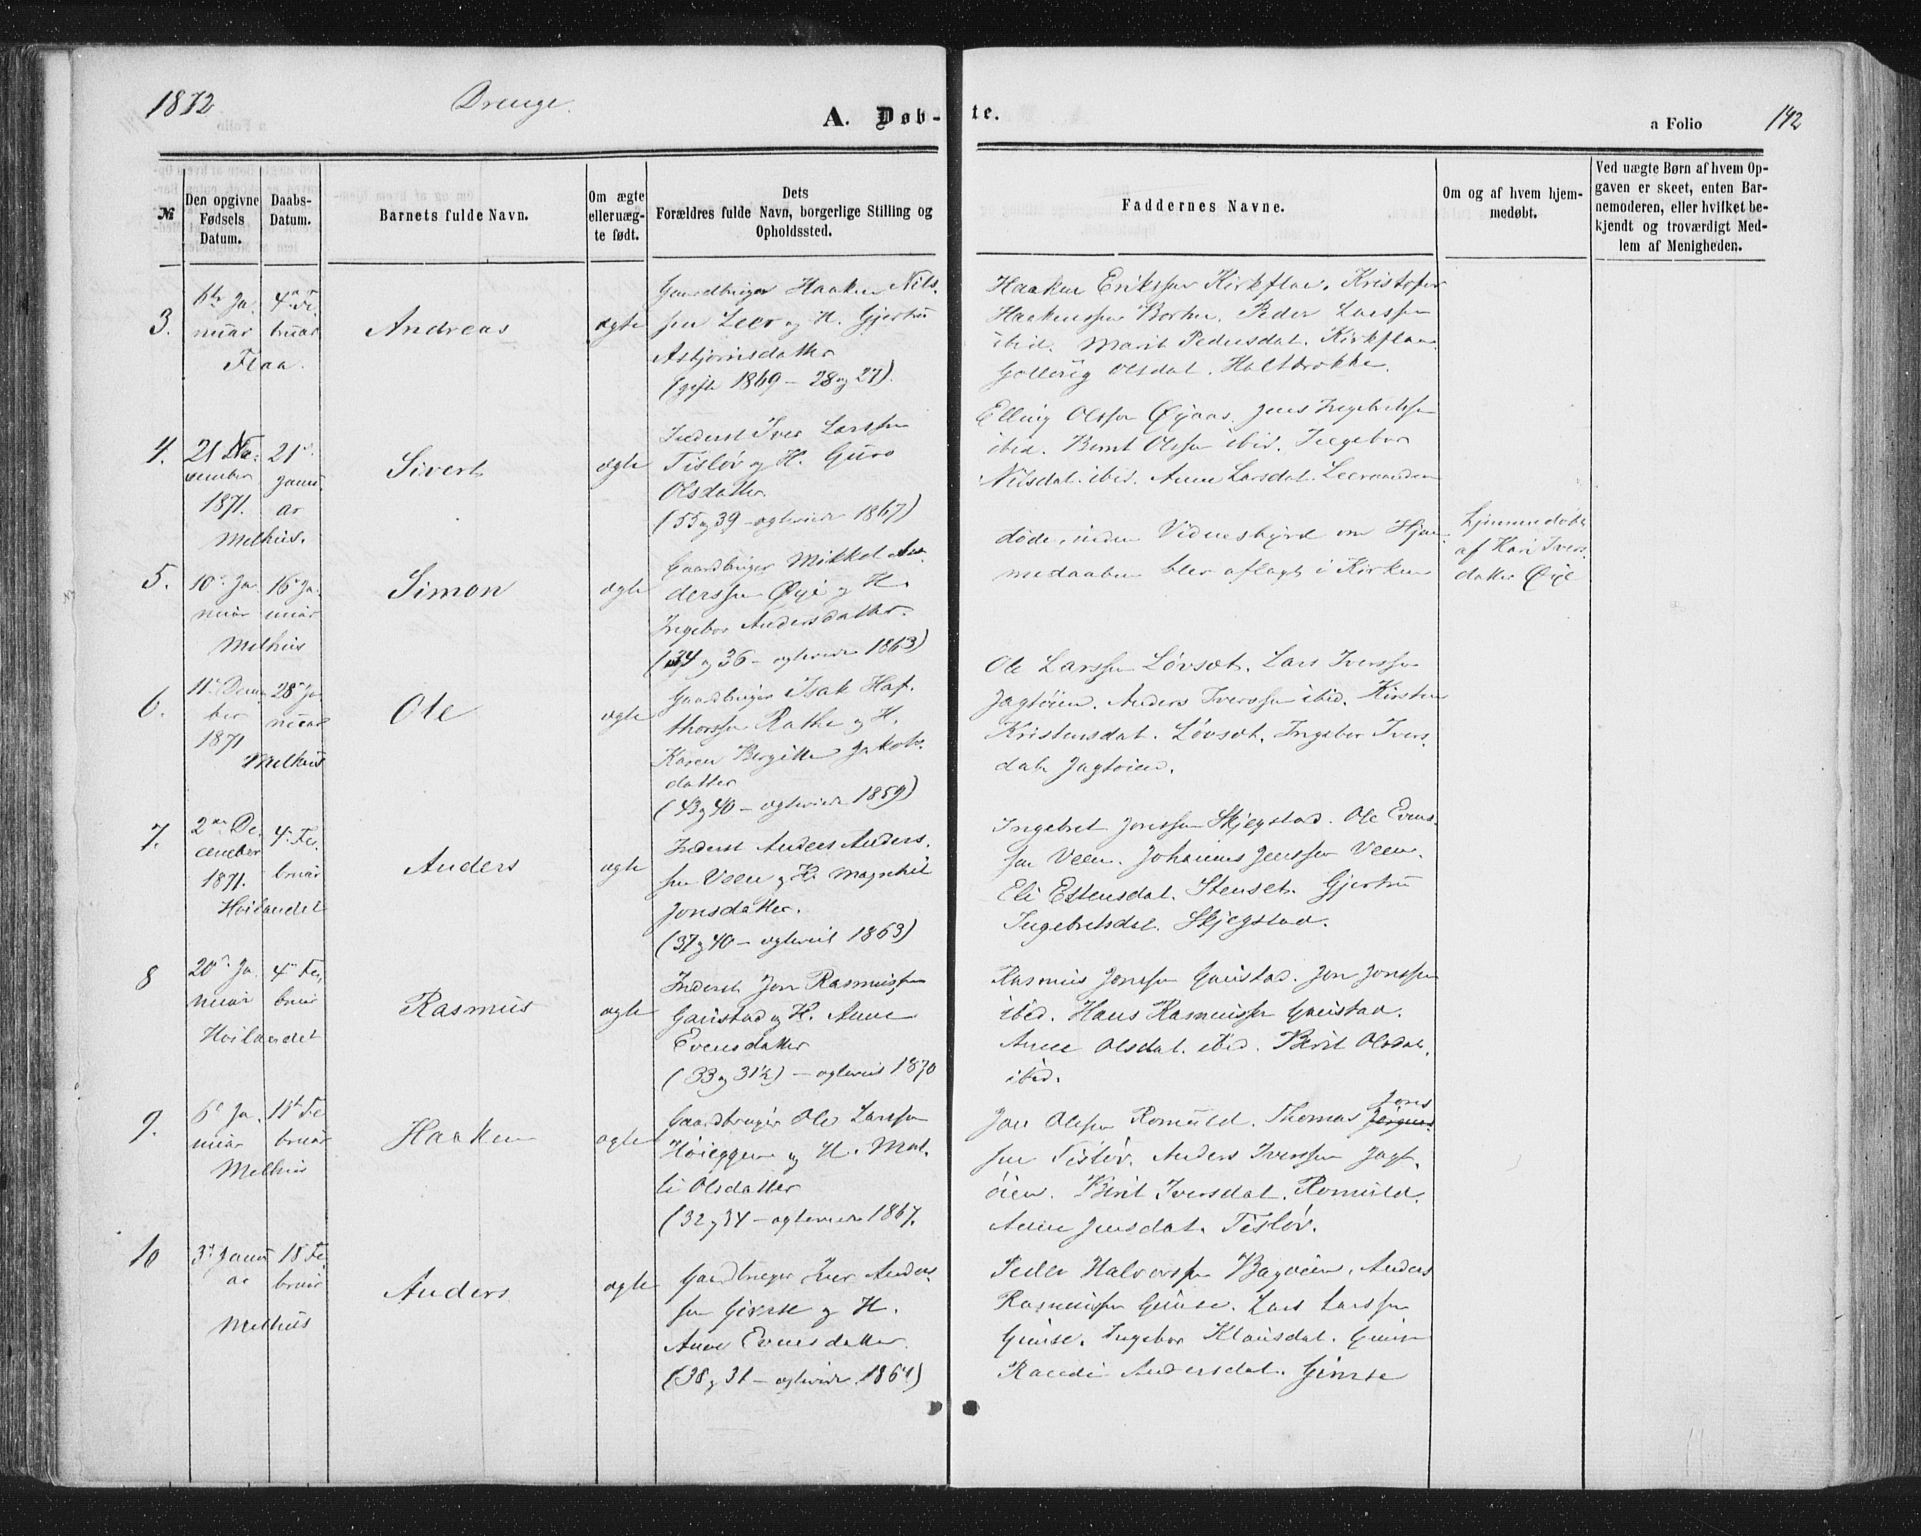 1872
Drenge.
A. Døb-
te.
a Folio
142
№
Den opgivne Fødsels Datum.
Daabs-Datum.
Barnets fulde Navn.
Om ægte eller uæg-te født.
Dets Forældres fulde Navn, borgerlige Stilling og Opholdssted.
Faddernes Navne.
Om og af hvem hjem-medøbt.
Ved uægte Børn af hvem Op-gaven er skeet, enten Bar-nemoderen, eller hvilket be-kjendt og troværdigt Med-lem af Menigheden.
3.
6te Ja-
nuar
Flaa.
4de Fe-
bruar
Andreas
ægte
Gaardbruger Haaken Nils-
sen Leer og H. Gjertru
Asbjørnsdatter
(gifte 1869 - 28 og 27).
Haaken Erikssen Kirkflaa. Kristofer
Haakenssen Borten. Peder Larssen
ibid. Marit Pedersdat. Kirkflaa.
Olsdat. Haltbrekken.
4.
21 No-
vember
1871.
Melhus.
21de
Janu-
ar
Sivert
ægte
Inderst Iver Larssen
Tisløv og H. Guro
Olsdatter
(55 og 39 - ægteviede 1867)
Elling Olssen Øyaas. Jens Ingebretssen
ibid. Bernt Olssen ibid. Ingebor
Nilsdat. ibid. Anne Larsdat. Leersanden
5.
10de Ja-
nuar
Melhus
16de Ja-
nuar
Simon
ægte
Gaardbruger Mikkel An-
derssen Øye og H.
Ingebor Andersdatter.
(34 og 36 - ægteviede 1863)
døde, inden Vidnesbyrd om Hjem-
medaaben blev aflagt i Kirken
hjemmedøbt
af Kari Ivers-
datter Øye
6.
11te Decem-
ber
1871
Melhus
28de Ja-
nuar
Ole
ægte
Gaardbruger Isak Haf-
thorssen Rathe og H.
Karen Bergitte Jakobs-
datter
(43 og 40 - ægteviede 1859)
Ole Larssen Løvset. Lars Iverssen
Jagtøien. Anders Iverssen ibid. Kirsten
Kristensdat. Løvset. Ingebor Ivers-
dat. Jagtøien.
7.
2den De-
cember
1871.
Høilandet
4de Fe-
bruar
Anders
ægte
Inderst Anders Anders-
sen Veen og H. Magnhil
Jonsdatter.
(37 og 40 - ægteviet 1863)
Ingebret Jonssen Skjegstad. Ole Evens-
sen Veen. Johannes Jenssen Veen.
Eli Estensdat. Stenset. Gjertru
Ingebretsdat. Skjegstad.
8
20de Ja-
nuar
Høilandet
4de Fe-
bruar
Rasmus
ægte
Inderst Jon Rasmussen
Gaustad og H. Anne
Evensdatter
(33 og 31½) - ægteviet 1870
Rasmus Jonssen Gaustad. Jon Jonssen
ibid. Hans Rasmussen Gaustad.
Anne Olsdat. ibid. Berit Olsdat.
ibid.
9.
6te Ja-
nuar
Melhus
18de Fe-
bruar
Haaken
ægte
Gaardbruger Ole Larssen
Høieggen og H. Mal-
li Olsdatter
(32 og 34 - ægteviede 1867.
Jon Olssen Romuld. Thomas Jons
sen Tisløv. Anders Iverssen Jagt-
øien. Berit Iversdat. Romuld.
Anne Jensdat. Tisløv.
10
3die Janu-
ar
Melhus
18 Fe-
bruar
Anders
ægte
Gaardbruger Iver Anders-
sen Gimse og H.
Anne Evensdatter.
(38 og 31 - ægteviede 1864)
Peder Halvorssen Bagøien. Anders
Rasmussen Gimse. Lars Larssen
Gimse. Ingebor Klausdat. Gimse
Andersdat. Gimse